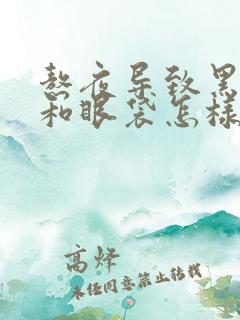 熬夜导致黑
和眼袋怎样
高烽
未经同意禁止转载